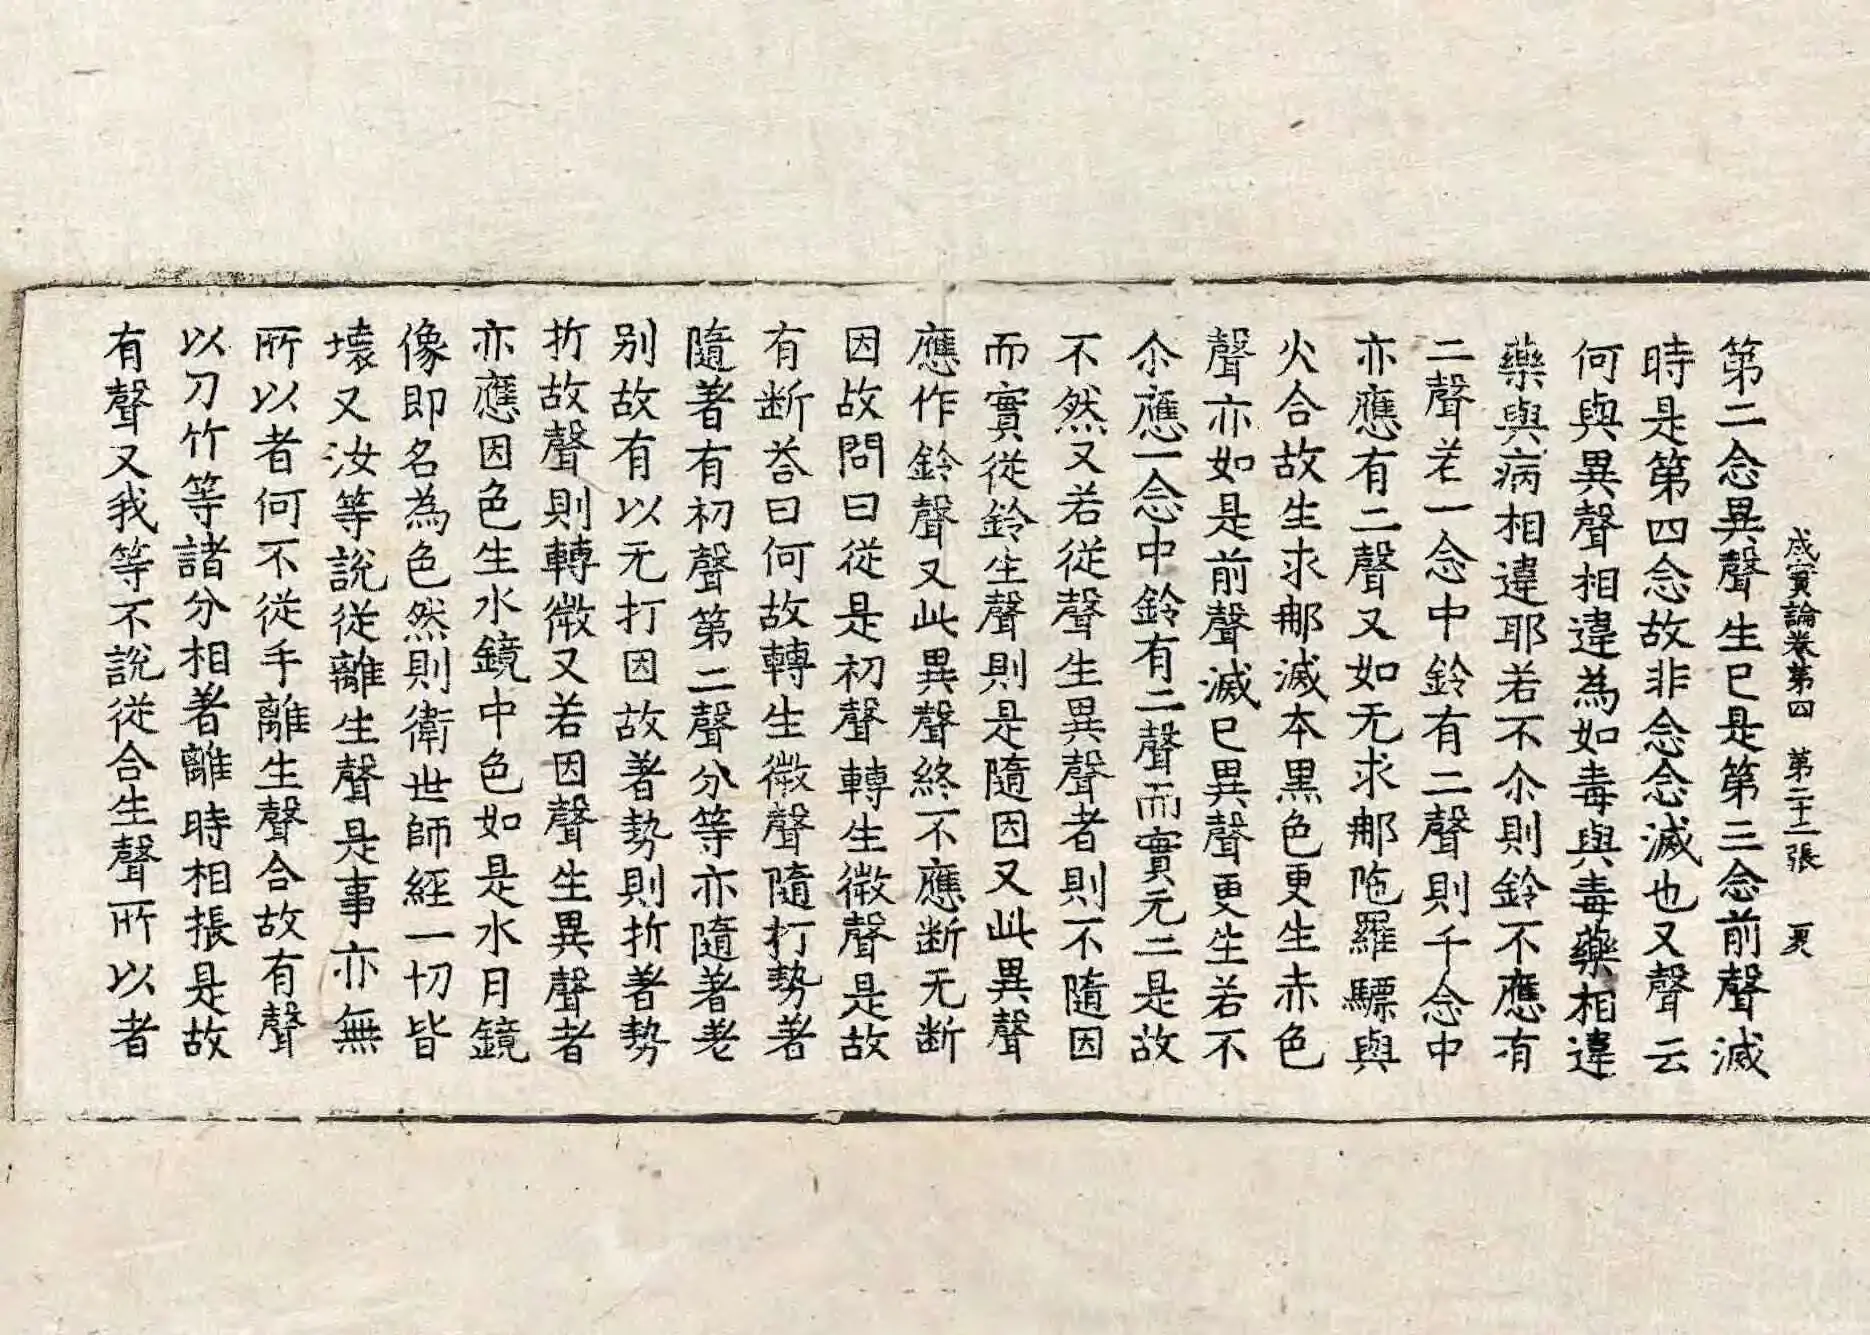 成實論卷第四 第二十二張 夏
第二念異聲生已是第三念前聲滅
時是第四念故非念念滅也又聲云
何與異聲相違為如毒與毒藥相違
藥與病相違耶若不尒則鈴不應有
二聲若一念中鈴有二聲則千念中
亦應有二聲又如无求那陁羅驃與
火合故生求那滅本黒色更生赤色
聲亦如是前聲滅已異聲更生若不
尒應一念中鈴有二聲而實无二是故
不然又若從聲生異聲者則不隨因
而實從鈴生聲則是隨因又此異聲
應作鈴聲又此異聲終不應断无断
因故問曰從是初聲轉生微聲是故
有断荅曰何故轉生微聲隨打勢著
隨著有初聲第二聲分等亦隨著差
别故有以无打因故著勢則折著勢
折故聲則轉微又若因聲生異聲者
亦應因色生水鏡中色如是水月鏡
像即名為色然則衛世師經一切皆
壊又汝等說從離生聲是事亦無
所以者何不從手離生聲合故有聲
以刀竹等諸分相著離時相振是故
有聲又我等不說從合生聲所以者